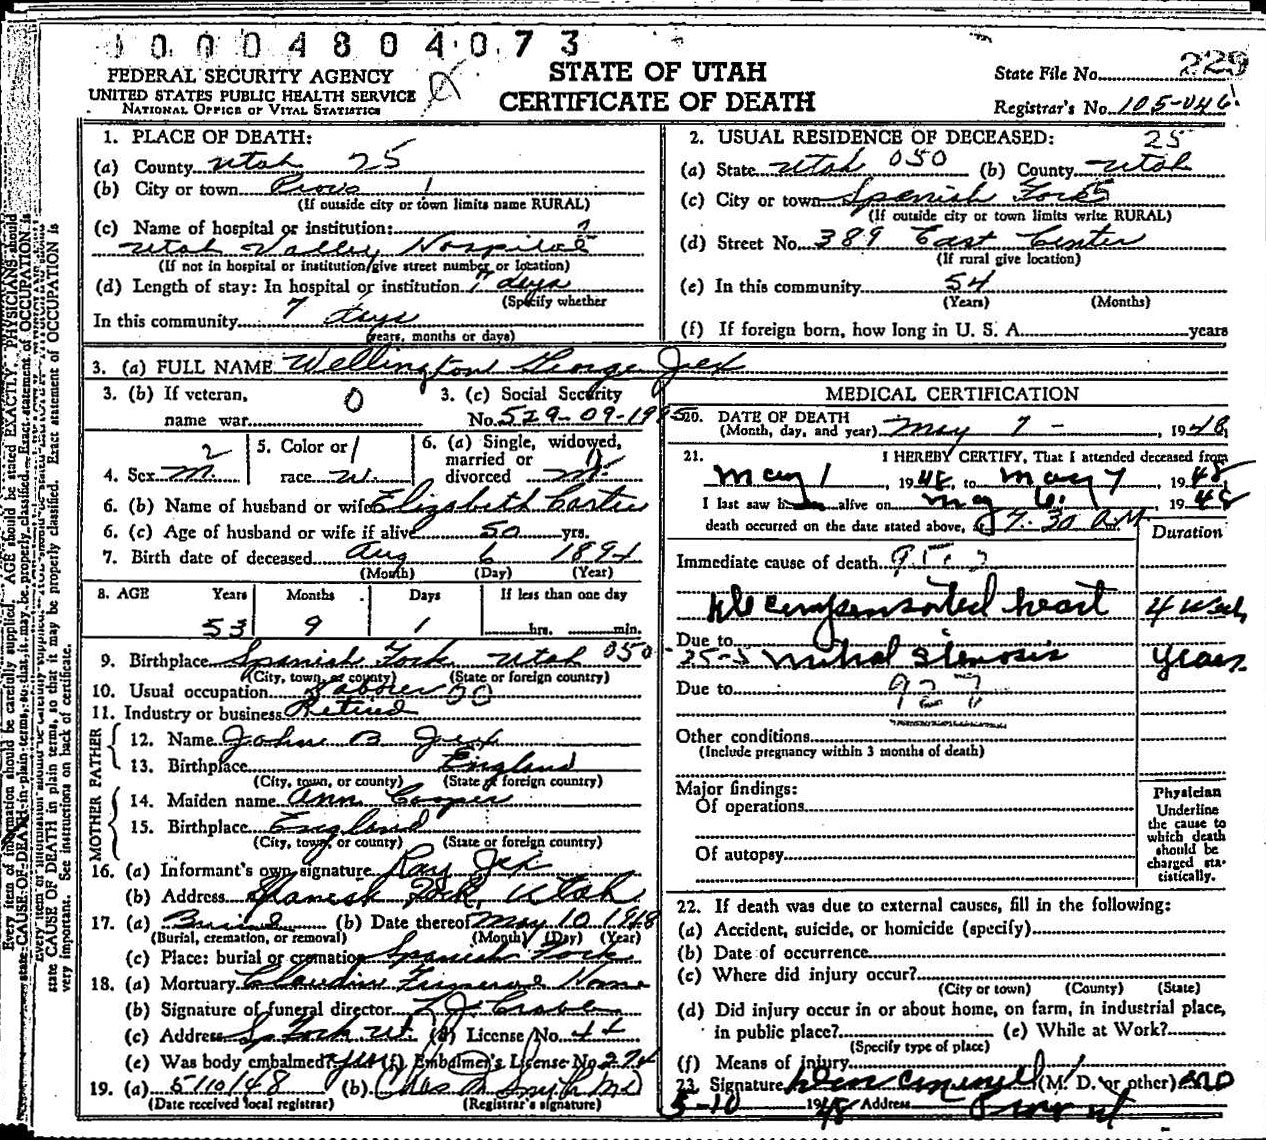 10004804073
FEDERAL SECURITY AGENCY
UNITED STATES PUBLIC HEALTH SERVICE
NATIONAL OFFICE OF VITAL STATISTICS
STATE OF UTAH
CERTIFICATE OF DEATH
State File No. 229
Registrar's No. 105-046
1. PLACE OF DEATH:
(a) County Utah 25
(b) City or town Provo 1
(If outside city or town limits name RURAL)
(c) Name of hospital or institution:
Utah Valley Hospital
(If not in hospital or institution give street number or location)
(d) Length of stay: In hospital or institution 7 days
(Specify whether
In this community 7 days
years, months or days)
2. USUAL RESIDENCE OF DECEASED: 25
(a) State Utah 050 (b) County Utah
(c) City or town Spanish Fork
(If outside city or town limits write RURAL)
(d) Street No. 389 East Center
(If rural give location)
(e) In this community 54
(Years) (Months)
(f) If foreign born, how long in U. S. A. years
3. (a) FULL NAME Wellington George Jex
3. (b) If veteran, 0
name war
3. (c) Social Security
No. 529-09-1985
4. Sex M. 2
5. Color or
race W. 1
6. (a) Single, widowed,
married or
divorced M.
6. (b) Name of husband or wife Elizabeth Carter
6. (c) Age of husband or wife if alive 50 yrs.
7. Birth date of deceased Aug 6 1894
(Month) (Day) (Year)
8. AGE Years Months Days If less than one day
53 9 1 hrs. min.
9. Birthplace Spanish Fork Utah 050
(City, town, or county) (State or foreign country)
10. Usual occupation Laborer 00
11. Industry or business Retired
FATHER
12. Name John B Jex
13. Birthplace England
(City, town, or county) (State or foreign country)
MOTHER
14. Maiden name Ann Cooper
15. Birthplace England
(City, town, or county) (State or foreign country)
16. (a) Informant's own signature Ray Jex
(b) Address Spanish Fork, Utah
17. (a) Burial (b) Date thereof May 10 1948
(Burial, cremation, or removal) (Month) (Day) (Year)
(c) Place: burial or cremation Spanish Fork
18. (a) Mortuary Claudin Funeral Home
(b) Signature of funeral director
(c) Address Sp Fork Ut. (d) License No. 44
(e) Was body embalmed? yes (f) Embalmer's License No. 274
19. (a) 5/10/48 (b) Chas M Smith MD
(Date received local registrar) (Registrar's signature)
MEDICAL CERTIFICATION
20. DATE OF DEATH
(Month, day, and year) May 7 - , 1948
21. I HEREBY CERTIFY, That I attended deceased from
May 1 , 1948, to May 7 , 1948
I last saw h alive on May 6 , 1948
death occurred on the date stated above, @ 7:30 A.M
Duration
Immediate cause of death
Decompensated heart 4 weeks
Due to
Mitral Stenosis years
Due to
Other conditions
(Include pregnancy within 3 months of death)
Major findings:
Of operations
Of autopsy
Physician
Underline
the cause to
which death
should be
charged sta-
tistically.
22. If death was due to external causes, fill in the following:
(a) Accident, suicide, or homicide (specify)
(b) Date of occurrence
(c) Where did injury occur?
(City or town) (County) (State)
(d) Did injury occur in or about home, on farm, in industrial place,
in public place? (e) While at Work?
(Specify type of place)
(f) Means of injury
23. Signature (M. D. or other) MD
5-10 1948 Address Provo Ut
Every item of information should be carefully supplied. AGE should be stated EXACTLY. PHYSICIANS should
state CAUSE OF DEATH in plain terms, so that it may be properly classified. Exact statement of OCCUPATION is
very important. See instructions on back of certificate.